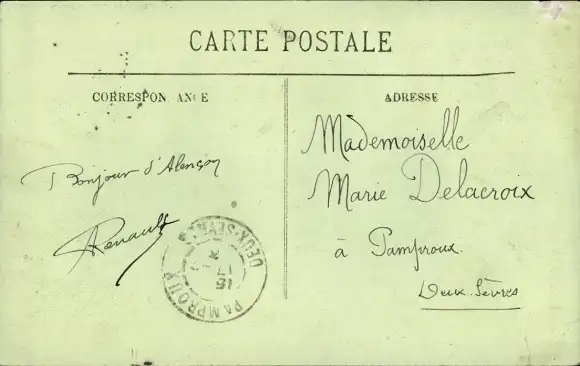 CARTE POSTALE
CORRESPON AN E
ADRESSE
Bonjour d'Alençon
Renault
Mademoiselle
Marie Delacroix
à Pamproux
Deux-Sèvres
PAMPROUX
DEUX-SÈVRES
15
17